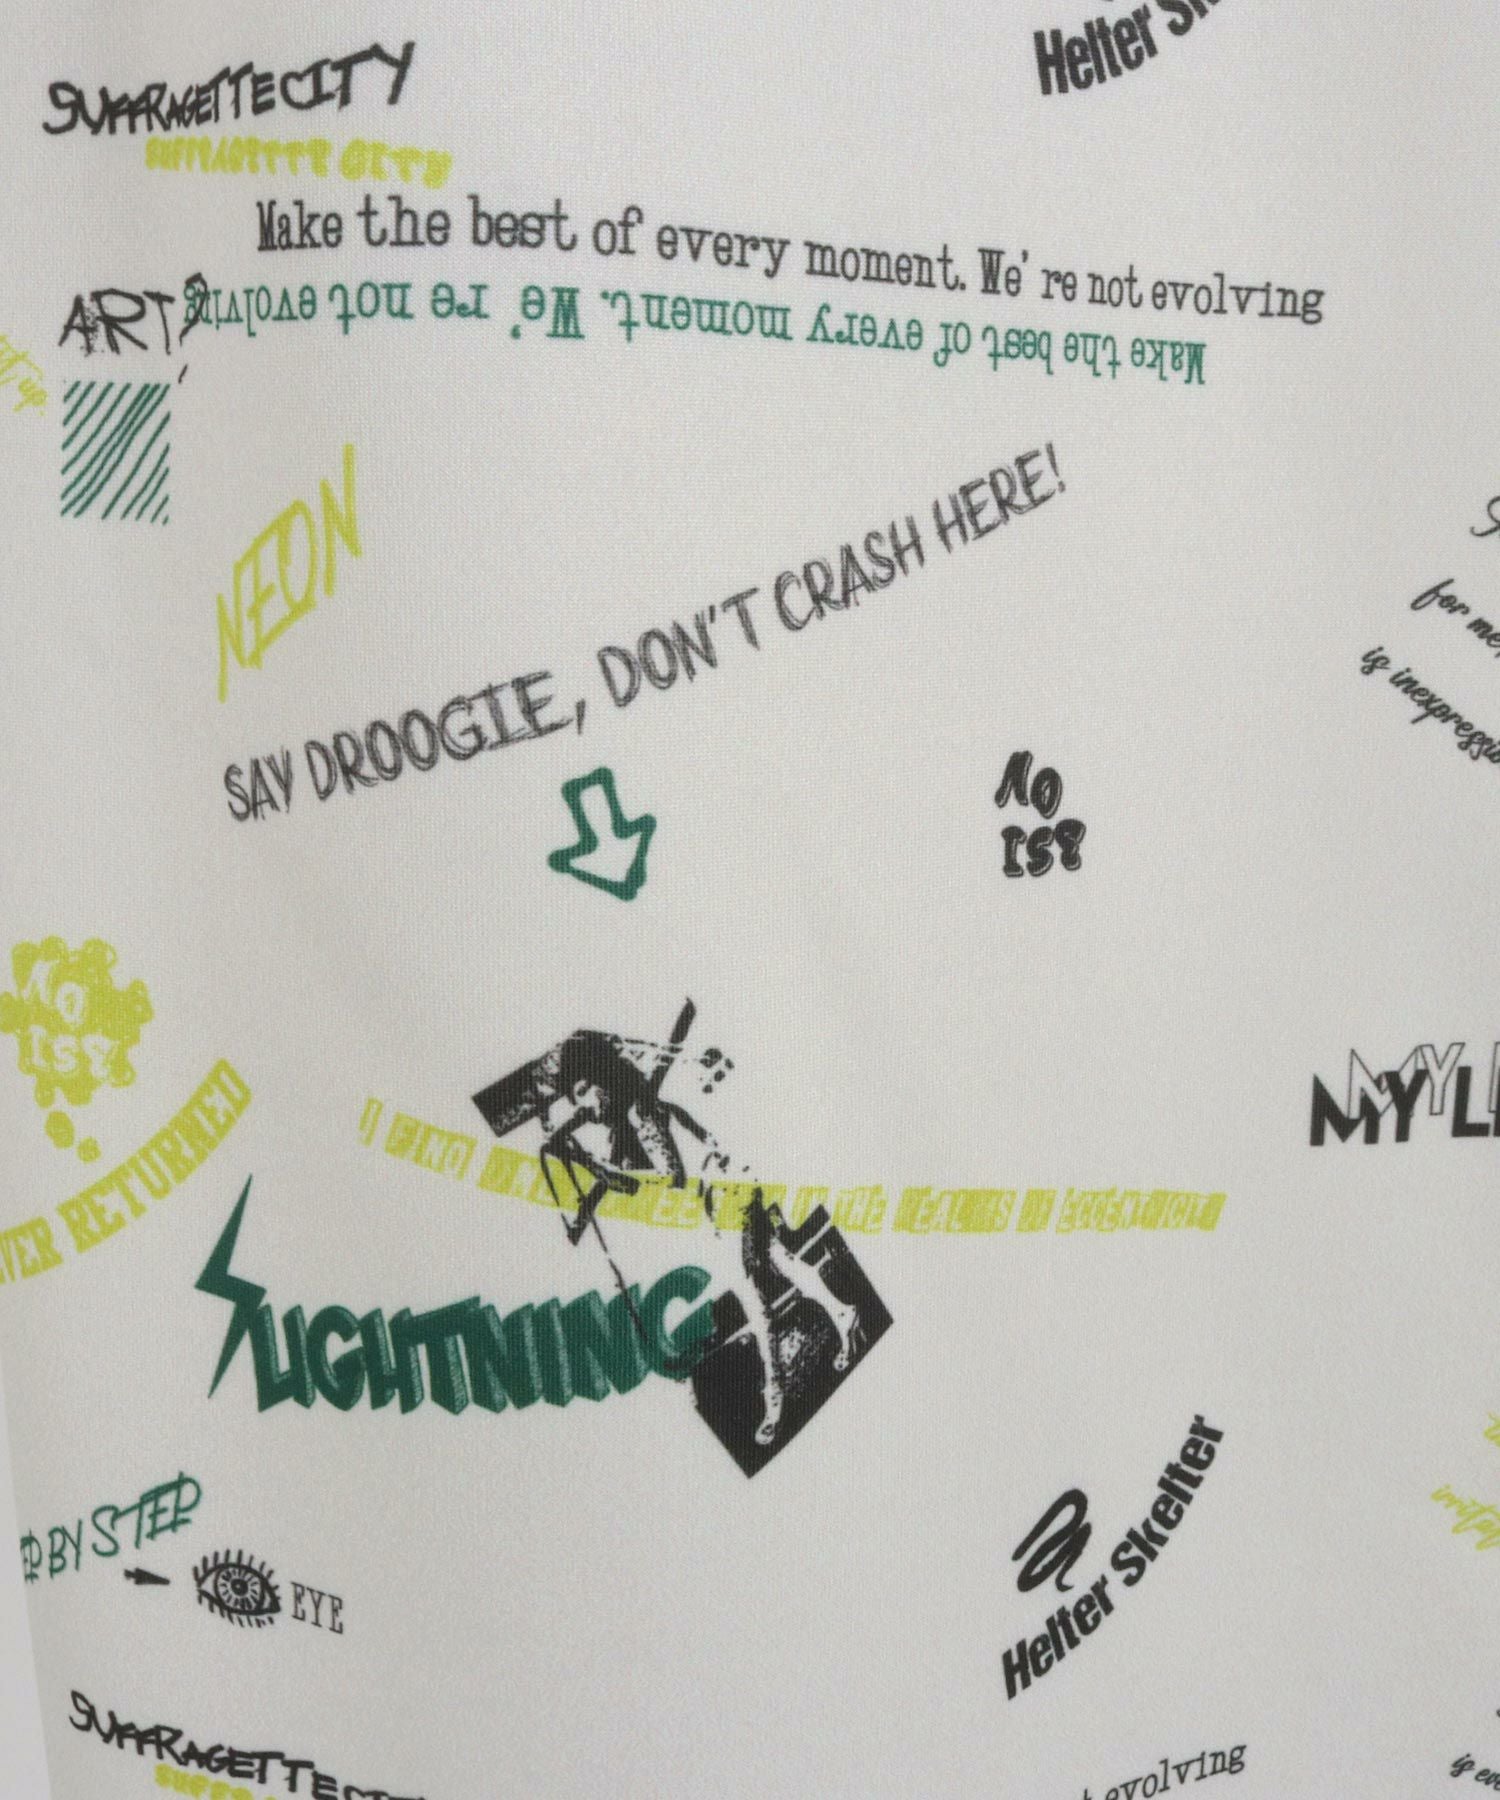 Helter
SUFFRAGETTE CITY
SUFFRAGETTE CITY
Make the best of every moment. We're not evolving
Make the best of every moment. We're not evolving
ART
up
NEON
SAY DROOGIE, DON'T CRASH HERE!
for me,
is
NO
ISE
NO
ISE
MY
RETURNED
IN THE REALMS OF
LIGHTNING
BY STEP
EYE
Helter Skelter
SUFFRAGETTE
evolving
is